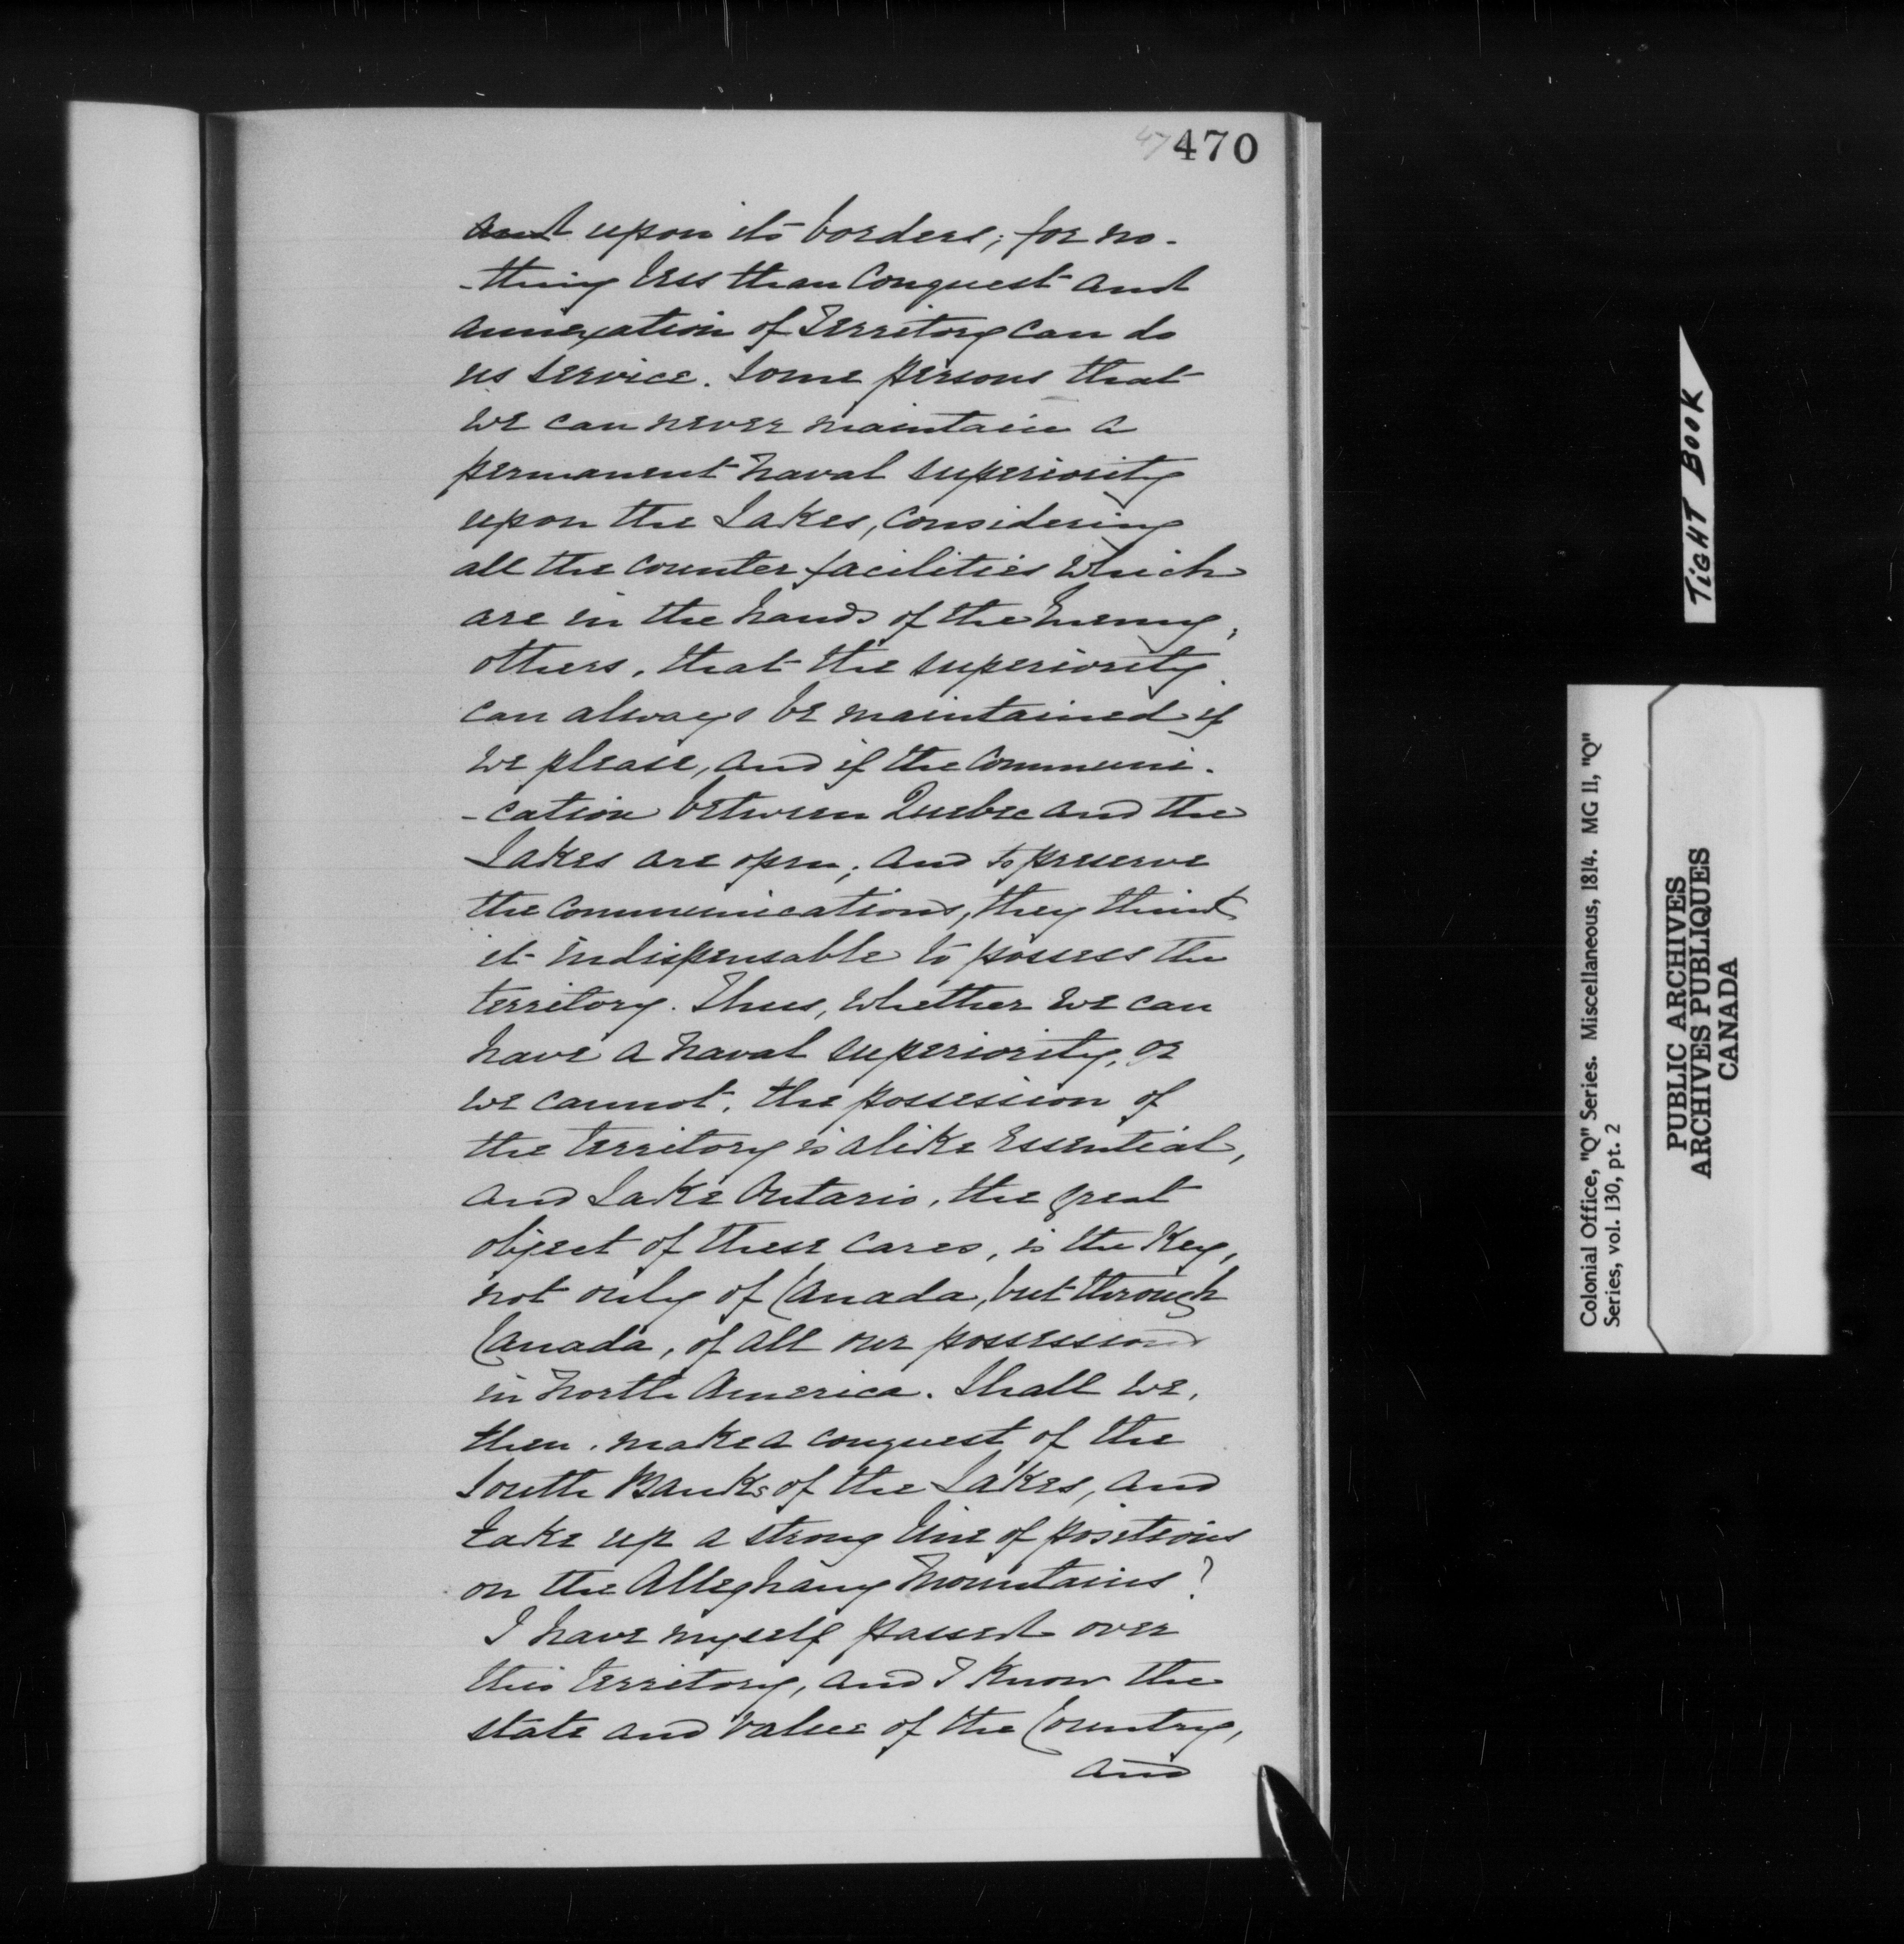 470
and upon its borders; for no-
-thing less than Conquest and
annexation of Territory can do
us service. Some persons that
we can never maintain a
permanent naval superiority
upon the Lakes, considering
all the counter facilities which
are in the hands of the Enemy,
others, that the superiority
can always be maintained if
we please, and if the communi-
-cation between Quebec and the
Lakes are open; and to preserve
the communications, they think
it indispensable to possess the
territory. Thus, whether we can
have a naval superiority, or
we cannot, the possession of
the territory is alike essential,
and Lake Ontario, the great
object of these cares, is the Key,
not only of Canada, but through
Canada, of all our possessions
in North America. Shall we,
then, make a conquest of the
South Banks of the Lakes, and
take up a strong line of positions
on the Alleghany Mountains?
I have myself passed over
this territory, and I know the
state and value of the Country,
and
TIGHT BOOK
Colonial Office, "Q" Series. Miscellaneous, 1814. MG 11, "Q"
Series, vol. 130, pt. 2
PUBLIC ARCHIVES
ARCHIVES PUBLIQUES
CANADA